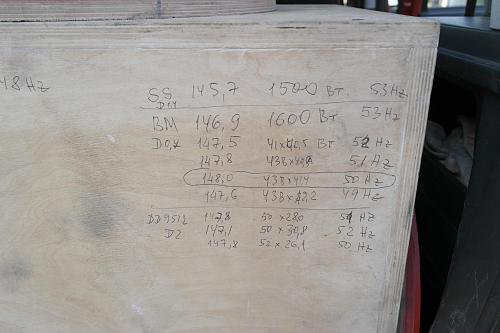 48Hz
SS 145,7 1500 Вт. 53Hz
D1,1
BM 146,9 1600 Вт 53Hz
D0,4 147,5 41x40,5 Вт 52Hz
147,8 43В x 51Hz
148,0 43В x 41,4 50 Hz
147,6 43В x 42,2 49Hz
DD9512 147,8 50 x 28,0 51 Hz
D2 147,1 50 x 30,8 52 Hz
147,8 52 x 26,1 50 Hz